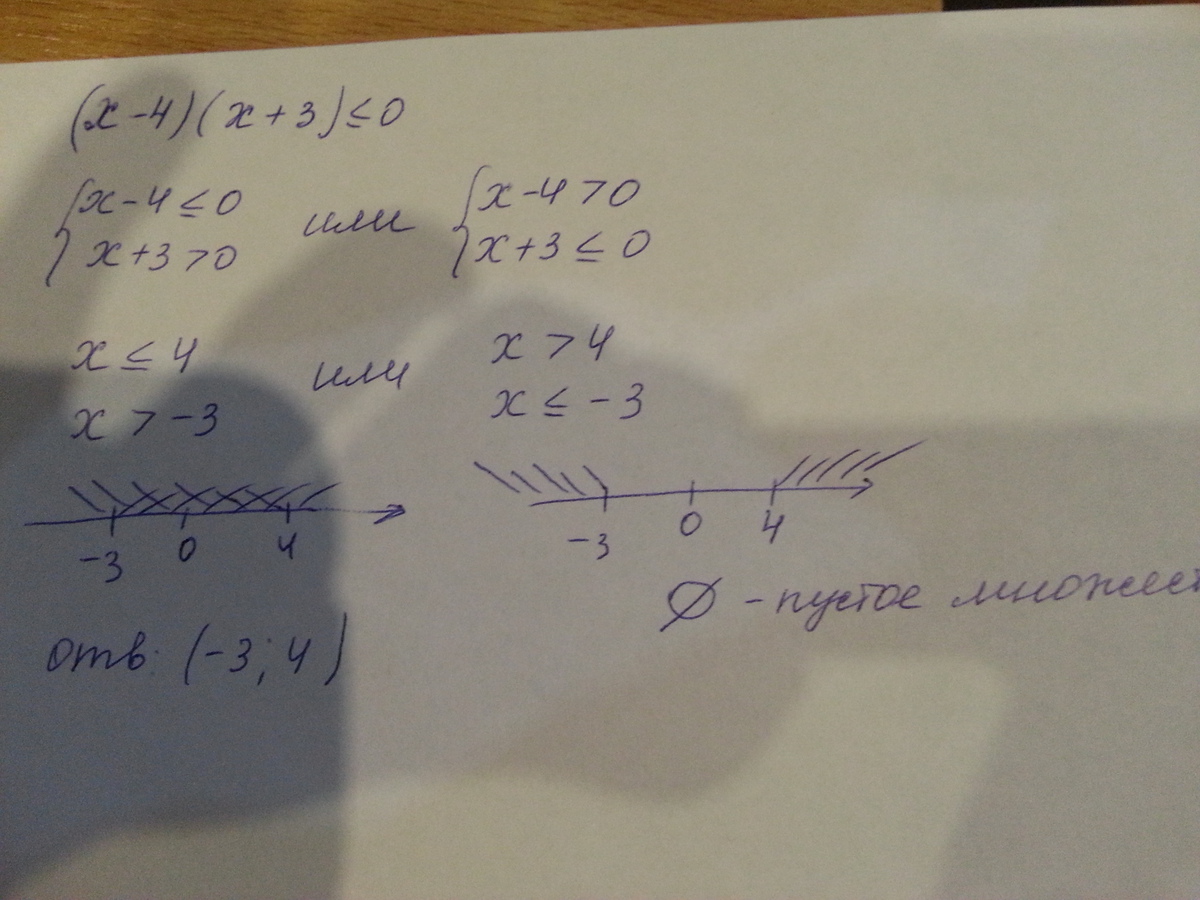 (x-4)(x+3)≤0
{x-4≤0 или {x-4>0
x+3>0 x+3≤0
x≤4 или x>4
x>-3 x≤-3
-3 0 4 -3 0 4
∅ - пустое множест
отв: (-3; 4)